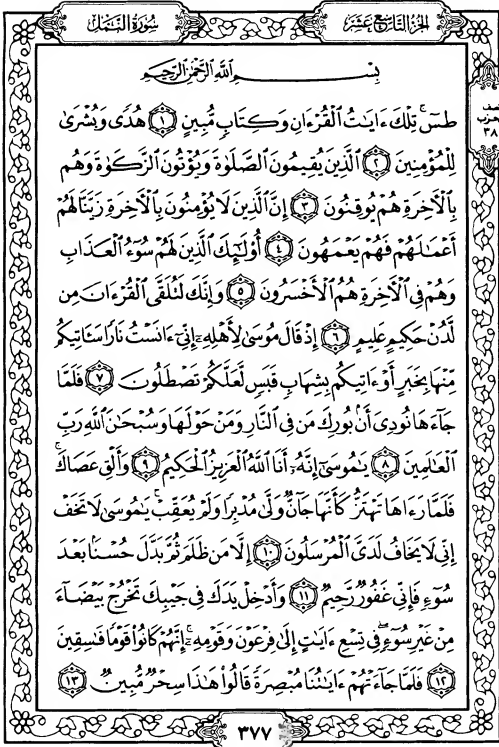 الجزء التاسع عشر
سورة النمل
بِسْمِ اللَّهِ الرَّحْمَٰنِ الرَّحِيمِ
طسٓ ۚ تِلْكَ ءَايَٰتُ الْقُرْءَانِ وَكِتَابٍ مُّبِينٍ ﴿١﴾ هُدًى وَبُشْرَىٰ
لِلْمُؤْمِنِينَ ﴿٢﴾ الَّذِينَ يُقِيمُونَ الصَّلَوٰةَ وَيُؤْتُونَ الزَّكَوٰةَ وَهُم
بِالْءَاخِرَةِ هُمْ يُوقِنُونَ ﴿٣﴾ إِنَّ الَّذِينَ لَا يُؤْمِنُونَ بِالْءَاخِرَةِ زَيَّنَّا لَهُمْ
أَعْمَٰلَهُمْ فَهُمْ يَعْمَهُونَ ﴿٤﴾ أُو۟لَٰٓئِكَ الَّذِينَ لَهُمْ سُوٓءُ الْعَذَابِ
وَهُمْ فِي الْءَاخِرَةِ هُمُ الْأَخْسَرُونَ ﴿٥﴾ وَإِنَّكَ لَتُلَقَّى الْقُرْءَانَ مِن
لَّدُنْ حَكِيمٍ عَلِيمٍ ﴿٦﴾ إِذْ قَالَ مُوسَىٰ لِأَهْلِهِۦٓ إِنِّىٓ ءَانَسْتُ نَارًا سَـَٔاتِيكُم
مِّنْهَا بِخَبَرٍ أَوْ ءَاتِيكُم بِشِهَابٍ قَبَسٍ لَّعَلَّكُمْ تَصْطَلُونَ ﴿٧﴾ فَلَمَّا
جَآءَهَا نُودِىَ أَنۢ بُورِكَ مَن فِي النَّارِ وَمَنْ حَوْلَهَا وَسُبْحَٰنَ اللَّهِ رَبِّ
الْعَٰلَمِينَ ﴿٨﴾ يَٰمُوسَىٰٓ إِنَّهُۥٓ أَنَا اللَّهُ الْعَزِيزُ الْحَكِيمُ ﴿٩﴾ وَأَلْقِ عَصَاكَ ۚ
فَلَمَّا رَءَاهَا تَهْتَزُّ كَأَنَّهَا جَآنٌّ وَلَّىٰ مُدْبِرًا وَلَمْ يُعَقِّبْ ۚ يَٰمُوسَىٰ لَا تَخَفْ
إِنِّى لَا يَخَافُ لَدَىَّ الْمُرْسَلُونَ ﴿١٠﴾ إِلَّا مَن ظَلَمَ ثُمَّ بَدَّلَ حُسْنًۢا بَعْدَ
سُوٓءٍ فَإِنِّى غَفُورٌ رَّحِيمٌ ﴿١١﴾ وَأَدْخِلْ يَدَكَ فِى جَيْبِكَ تَخْرُجْ بَيْضَآءَ
مِنْ غَيْرِ سُوٓءٍ ۖ فِى تِسْعِ ءَايَٰتٍ إِلَىٰ فِرْعَوْنَ وَقَوْمِهِۦٓ ۚ إِنَّهُمْ كَانُوا۟ قَوْمًا فَٰسِقِينَ
﴿١٢﴾ فَلَمَّا جَآءَتْهُمْ ءَايَٰتُنَا مُبْصِرَةً قَالُوا۟ هَٰذَا سِحْرٌ مُّبِينٌ ﴿١٣﴾
٣٧٧
٣٨